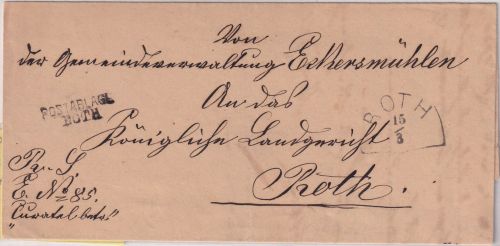 Von
der Gemeindeverwaltung Eckersmühlen
An das
Königliche Landgericht
Roth.
POSTABLAGE
ROTH
ROTH
15
3
E. No 85.
Curatel betr.